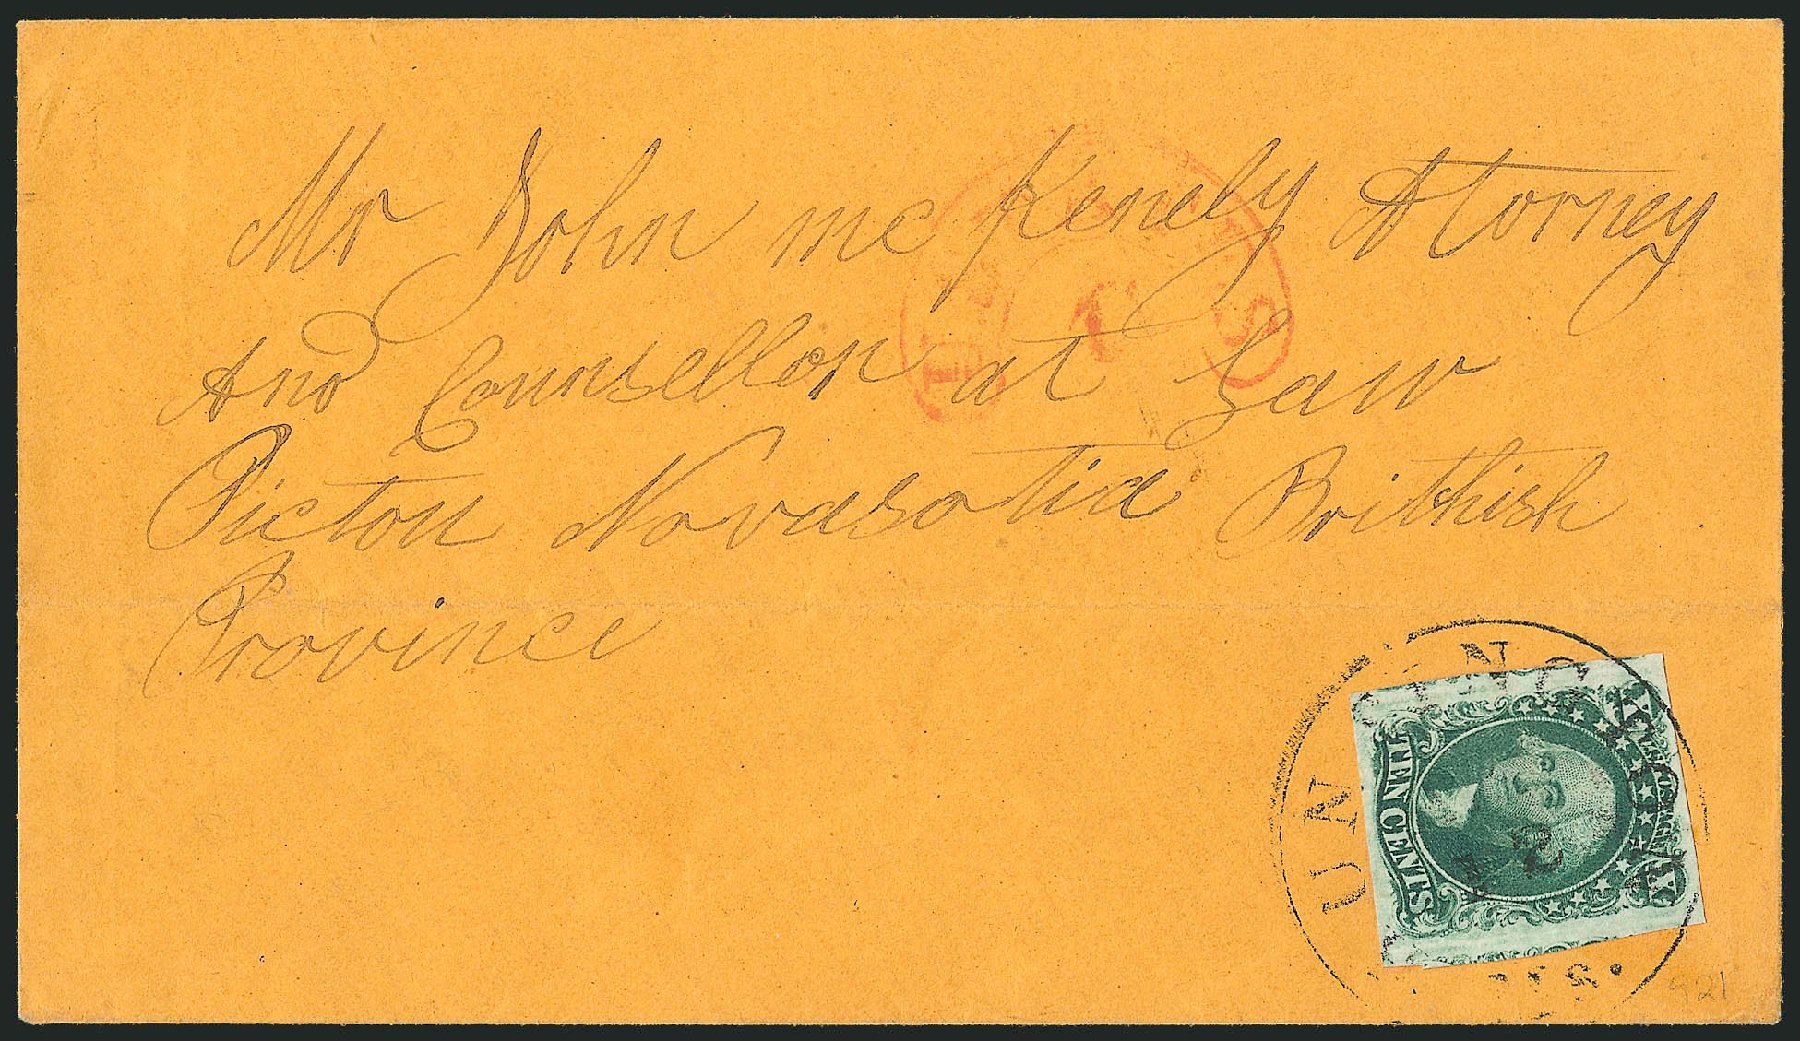 Mr John mc Kenely Attorney
And Counsellor at Law
Picton Novasotia Brithish
Province
U S
TEN CENTS
X X
421